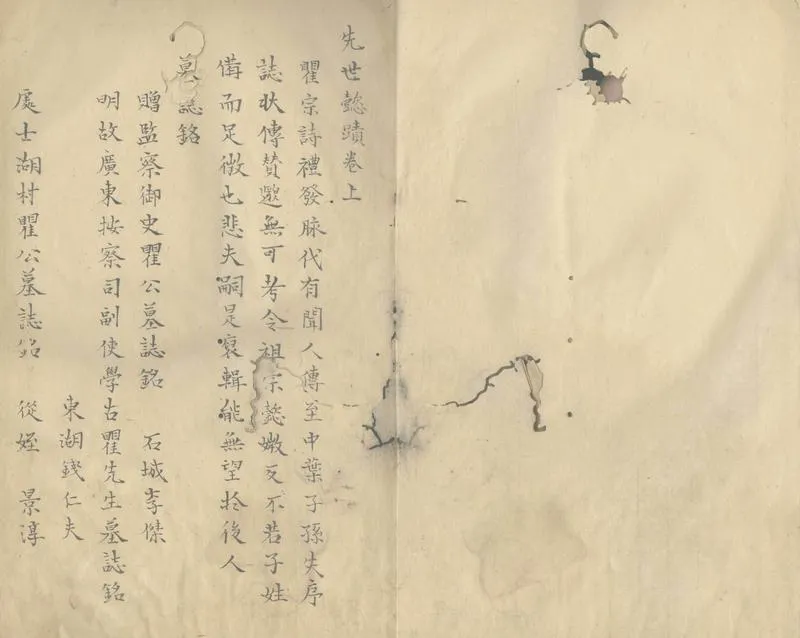 先世懿蹟卷上
瞿宗詩禮發脉代有聞人傳至中葉子孫失序
誌狀傳贊邈無可考令祖宗懿媺反不若子姓
備而足徴也悲夫嗣是裒輯能無望於後人
墓誌銘
贈監察御史瞿公墓誌銘 石城李傑
明故廣東按察司副使學古瞿先生墓誌銘
東湖錢仁夫
處士湖村瞿公墓誌銘 從姪 景淳